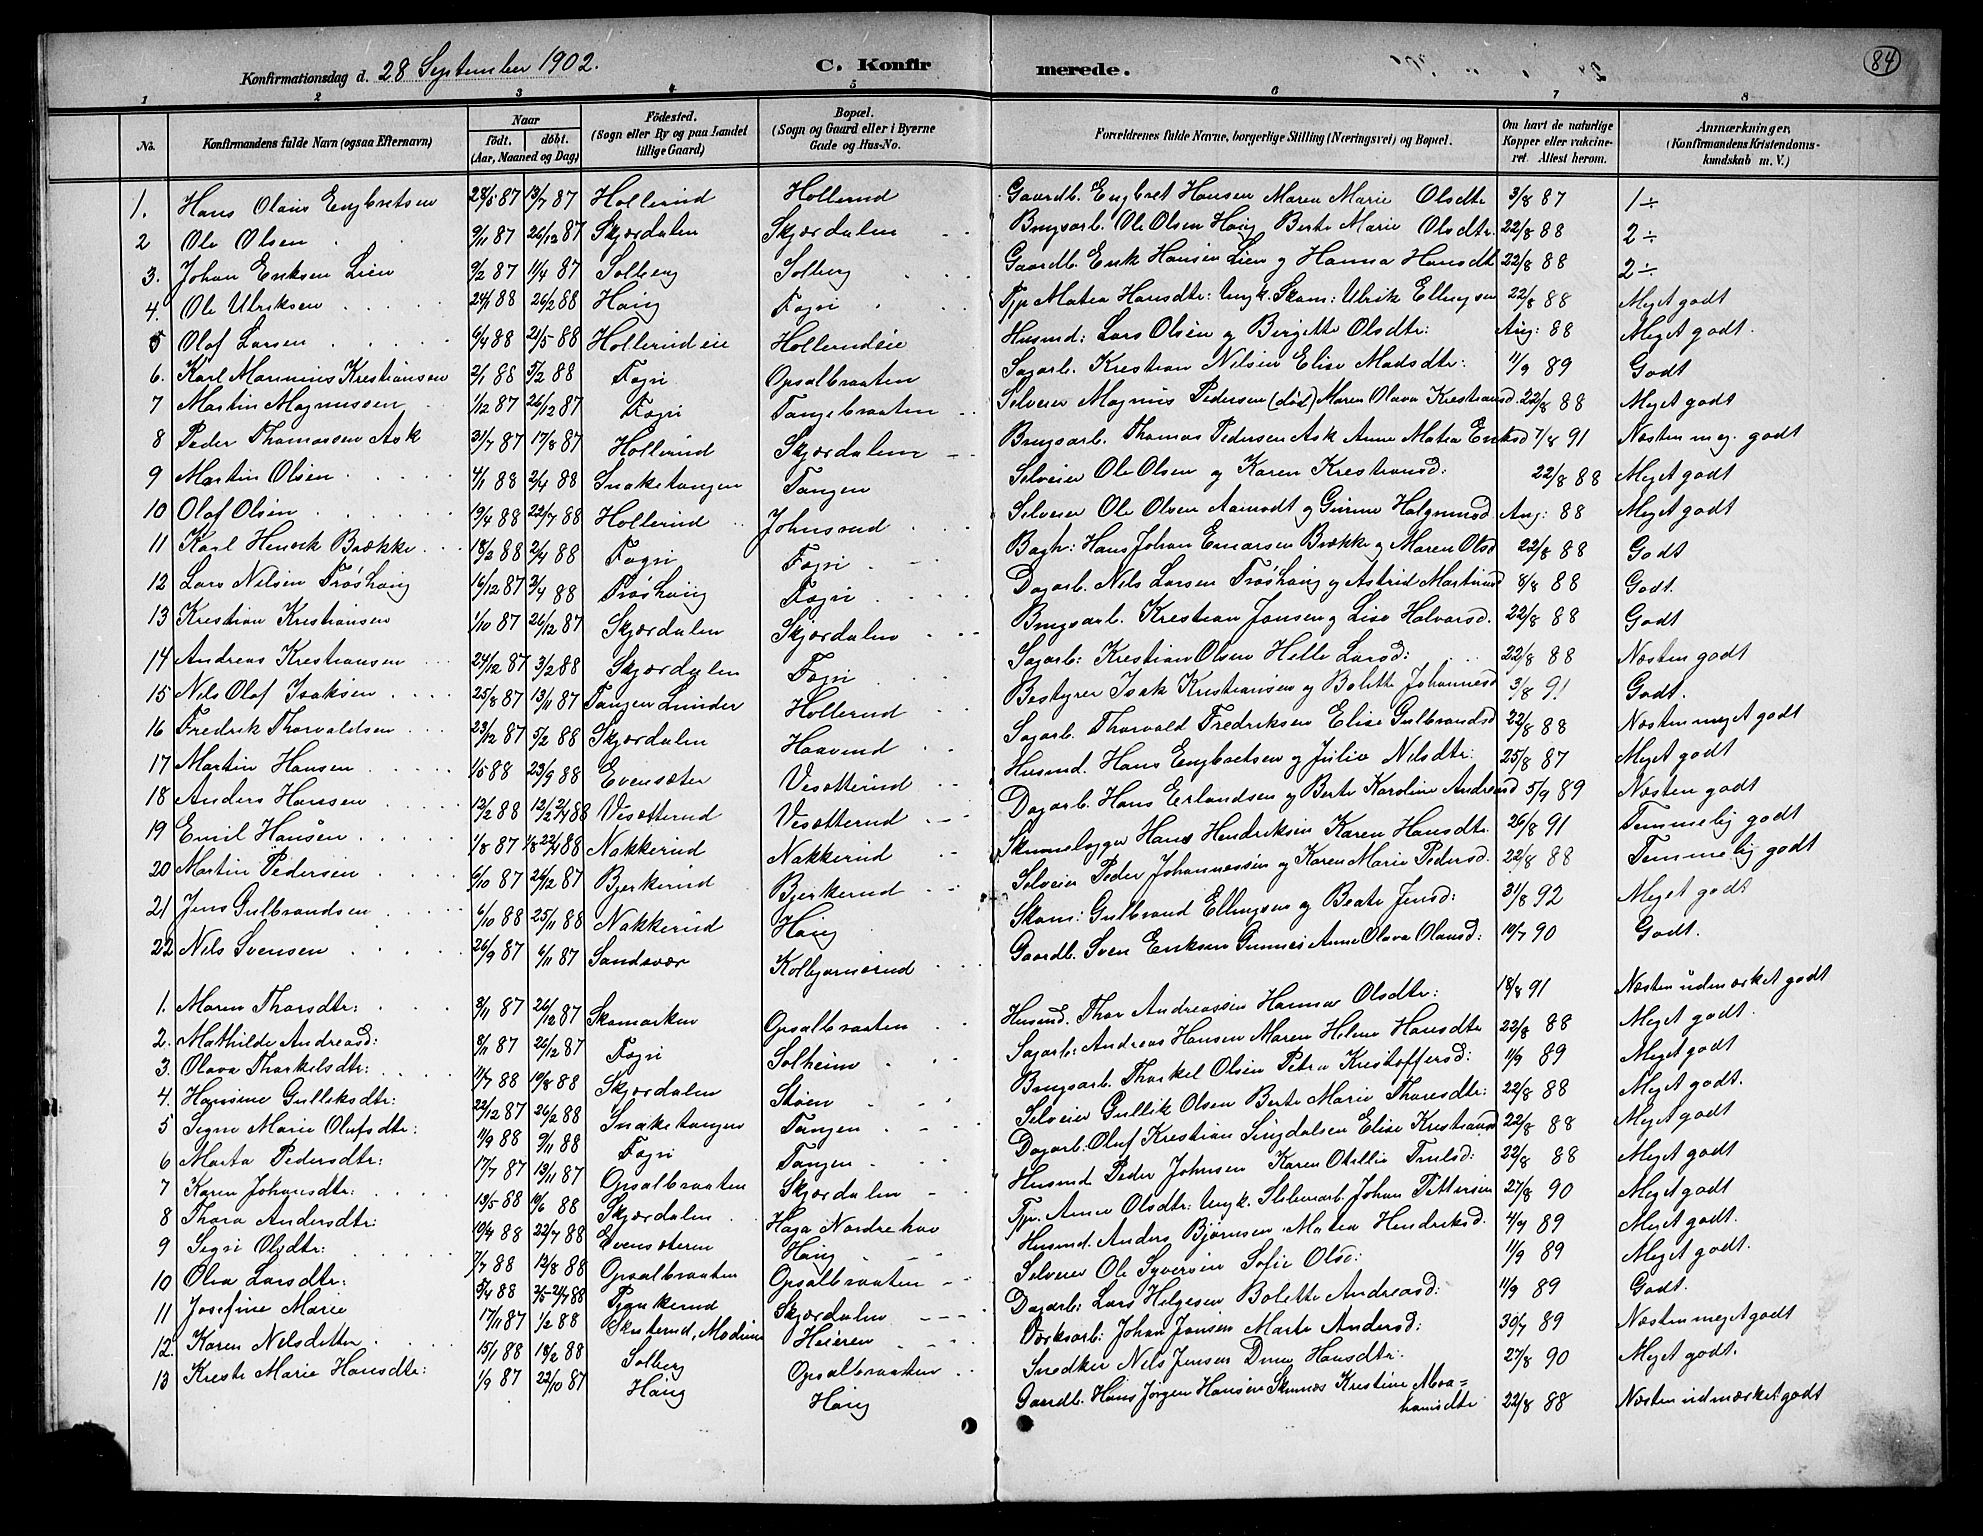 Konfirmationsdag d. 28 September 1902. C. Konfirmerede. 84
1 2 3 4 5 6 7 8
No. Konfirmandens fulde Navn (ogsaa Efternavn) Naar født. døbt. (Aar, Maaned og Dag) Fødested. (Sogn eller By og paa Landet tillige Gaard) Bopæl. (Sogn og Gaard eller i Byerne Gade og Hus-No. Forældrenes fulde Navne, borgerlige Stilling (Næringsvei) og Bopæl. Om havt de naturlige Kopper eller vakcineret. Attest herom. Anmærkninger, (Konfirmandens Kristendomskundskab m. V.)
1. Hans Olaus Engbretsen 28/5 87 13/7 87 Hollerud Hollerud Gaardb. Engbret Hansen Maren Marie Olsdtr 3/8 87 1÷
2 Ole Olsen 9/11 87 26/12 87 Skjærdalen Skjærdalen Brugsarb. Ole Olsen Haug Berte Marie Olsdtr. 22/8 88 2÷
3. Johan Eriksen Lien 9/2 87 11/4 87 Solberg Solberg Gaardb. Erik Hansen Lien og Hanna Hansdt 22/8 88 2÷
4. Ole Ulriksen 24/1 88 26/2 88 Haug Fogn Tjp Matea Hansdtr: Ungk. Skom: Ulrik Ellingsen 22/8 88 Meget godt
5 Olaf Larsen 6/4 88 21/5 88 Hollerudeie Hollerudeie Husmd: Lars Olsen og Birgitte Olsdtr: Aug: 88 Meget godt.
6. Karl Marinius Kristiansen 2/1 88 5/2 88 Fogn Opsalbraaten Sagarb. Kristian Nilsen Elise Madsdtr: 11/9 89 Godt
7 Martin Magnussen 1/12 87 26/12 87 Fogn Tangebraaten Selveier Magnus Pedersen (død) Maren Olava Kristiansd. 22/8 88 Meget godt
8 Peder Thomassen Ask 31/7 87 17/8 87 Hollerud Skjærdalen Brugsarb. Thomas Pedersen Ask Anne Matea Eriksd 7/8 91 Næsten meg. godt
9 Martin Olsen 4/1 88 2/4 88 Snaketangen Tangen Selveier Ole Olsen og Karen Kristiansd: 22/8 88 Meget godt
10 Olaf Olsen 19/4 88 22/7 88 Hollerud Johnsrud Selveier Ole Olsen Aamodt og Gunine Halgrimsd Aug: 88 Meget godt
11 Karl Henrik Brække 18/2 88 2/4 88 Fogn Fogn Bagh: Hans Johan Enarsen Brække og Maren Olsd 22/8 88 Godt
12 Lars Nilsen Frøshaug 16/12 87 3/4 88 Frøshaug Fogn Dagarb. Nils Larsen Frøshaug og Astrid Martinsd 8/8 88 Godt.
13 Kristian Kristiansen 1/10 87 26/12 87 Skjærdalen Skjærdalen Brugsarb. Kristian Jansen og Lise Halvorsd. 22/8 88 Godt
14 Andreas Kristiansen 24/12 87 3/2 88 Skjærdalen Fogn Sagarb: Kristian Olsen Helle Larsd: 22/8 88 Næsten godt
15 Nils Olaf Isaksen 25/8 87 13/11 87 Tangen Lunder Hollerud Bestyrer Isak Kristiansen og Bolette Johannesd 3/8 91 Godt.
16 Fredrik Thorvaldsen 23/12 87 5/2 88 Skjærdalen Haavrud Sagarb. Thorvald Fredriksen Elise Gulbrandsd 22/8 88 Næsten meget godt
17 Martin Hansen 1/5 88 23/9 88 Evensæter Vesætterud Husmd. Hans Engbretsen og Julie Nilsdtr: 25/8 87 Meget godt
18 Anders Hansen 12/2 88 Vesætterud Vesætterud Dagarb. Hans Erlandsen og Berte Karoline Andersd 5/9 89 Næsten godt
19 Emil Hansen 1/8 87 Nakkerud Nakkerud Hans Hendriksen Karen Hansdtr 26/8 91 Temmelig godt
20 Martin Pedersen 6/10 87 26/12 87 Bjerkerud Bjerkerud Selveier Peder Johannessen og Karen Marie Pedersd. 22/8 88 Temmelig godt
21 Jens Gulbrandsen 6/10 88 25/11 88 Nakkerud Haug Skom: Gulbrand Ellingsen og Beate Jensd: 31/8 92 Meget godt
22 Nils Svensen 26/9 87 6/11 87 Sandsvær Kolbjørnsrud Gaardb. Sven Eriksen Gunnes Anne Olava Olausd: 10/7 90 Godt.
1. Maren Thorsdtr: 3/11 87 26/12 87 Skamarken Opsalbraaten Husmd. Thor Andreassen Hanna Olsdtr: 18/8 91 Næsten udmærket godt
2. Mathilde Andreasd: 8/11 87 26/12 87 Fogn Solheim Sagarb: Andreas Hansen Maren Helene Hansdtr 22/8 88 Meget godt.
3. Olava Thorkelsdtr: 11/7 88 19/8 88 Skjærdalen Støen Brugsarb. Thorkel Olsen Petra Kristoffersd: 11/9 89 Meget godt
4. Hansine Gulliksdtr: 22/12 87 26/2 88 Snaketangen Tangen Selveier Gullik Olsen Berte Marie Thoresdtr: 22/8 88 Meget godt.
5 Signe Marie Olufsdtr: 11/9 88 9/11 88 Fogn Tangen Dagarb. Oluf Kristian Sigdalsen Elise Kristiansd 22/8 88 Meget godt
6 Marta Pedersdtr: 17/7 87 13/11 87 Opsalbraaten Skjærdalen Husmd Peder Johnsen Karen Otillie Trulsd: 22/8 88 Meget godt
7 Karen Johansdtr: 13/5 88 10/6 88 Skjærdalen Haga Nordrehov Tjp. Anne Olsdtr: Ungk. Johan Pettersen 27/8 90 Meget godt
8 Thora Andersdtr: 19/4 88 22/7 88 Evensæteren Haug Husmd. Anders Bjørnsen Matea Hendriksd. 11/9 89 Meget godt.
9 Sigri Olsdtr: 7/7 88 12/8 88 Opsalbraaten Opsalbraaten Selveier Ole Syversen Sofie Olsd: 11/9 89 Meget godt.
10 Olea Larsdtr: 5/4 88 Skjærdalen Dagarb: Lars Helgesen Bolette Andreasd: 11/9 89 Godt.
11 Josefine Marie 17/11 87 1/2 88 Skuterud, Modum Heieren Værksarb: Johan Jansen Marte Andersd: 30/7 89 Næsten meget godt
12. Karen Nilsdatter 15/1 88 18/2 88 Solberg Opsalbraaten Snedker Nils Jensen Hansdtr: 27/8 90 Meget godt.
13 Kirsti Marie Hansdtr: 1/9 87 22/10 87 Haug Haug Gaardb. Hans Jørgen Hansen Kristine Abrahamsdtr 22/8 88 Næsten udmærket godt